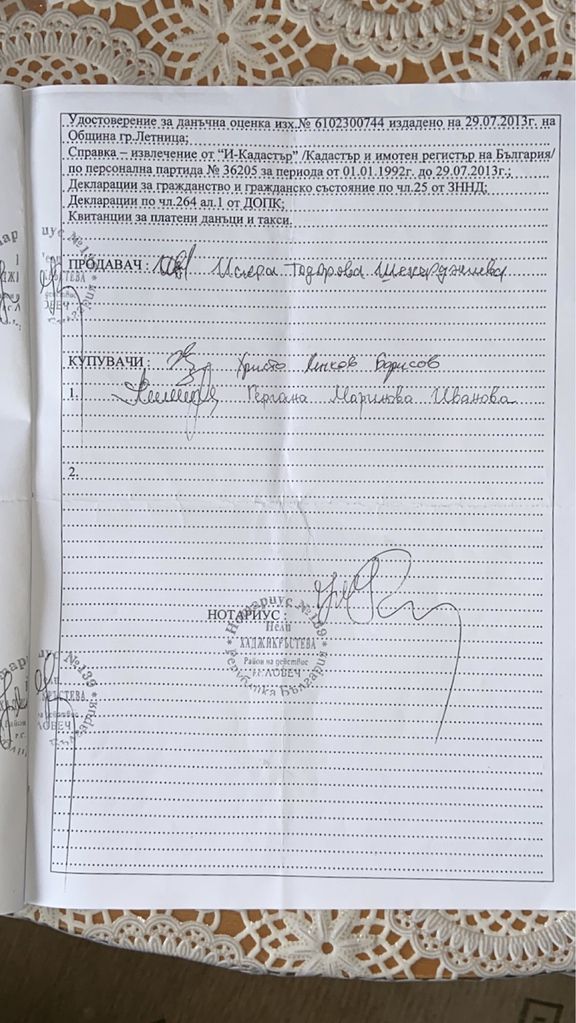 Удостоверение за данъчна оценка изх.№ 6102300744 издадено на 29.07.2013г. на
Община гр.Летница;
Справка – извлечение от “И-Кадастър” /Кадастър и имотен регистър на България/
по персонална партида № 36205 за периода от 01.01.1992г. до 29.07.2013г.;
Декларации за гражданство и гражданско състояние по чл.25 от ЗННД;
Декларации по чл.264 ал.1 от ДОПК;
Квитанции за платени данъци и такси.
ПРОДАВА�ч : Тодорова Шекерджиева
КУПУВАЧИ : Христо Борисов
1. Гергана Маринова Иванова
2.
НОТАРИУС :
Нотариус №139
Нели
ХАДЖИКРЪСТЕВА
Район на действие
ЛОВЕЧ
Република България
№139
България